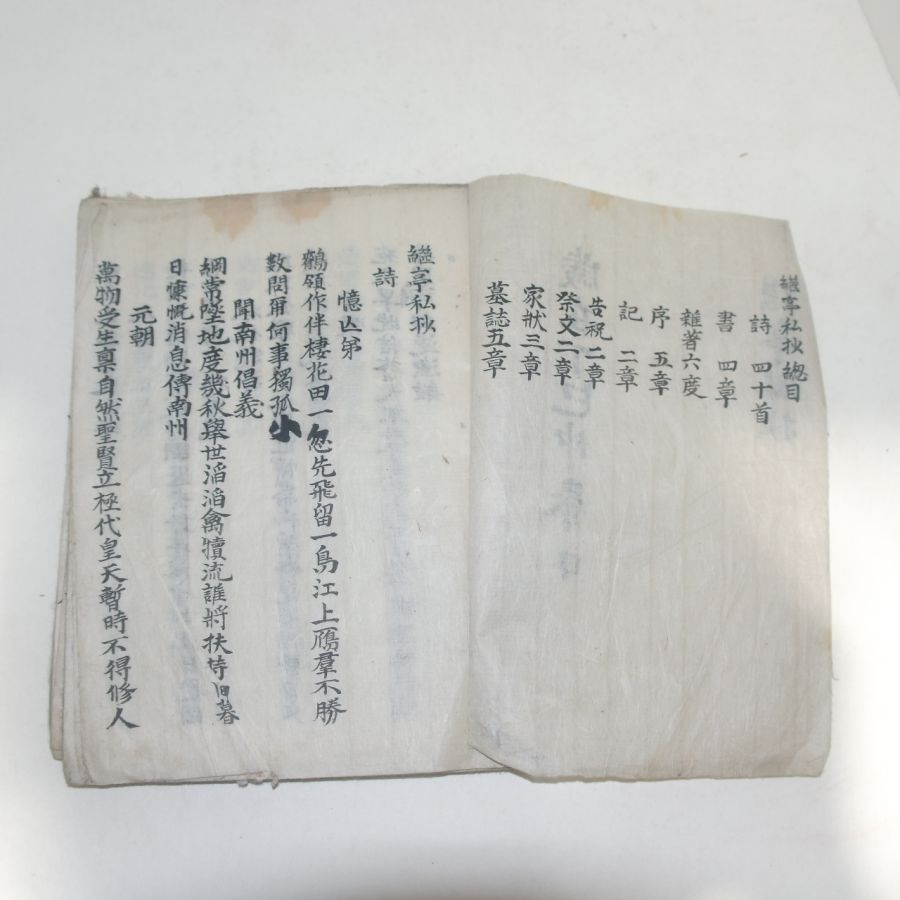 繼亭私抄總目
詩 四十首
書 四章
雜著六度
序 五章
記 二章
告祝二章
祭文二章
家狀三章
墓誌五章
繼亭私抄
詩
憶亡弟
鶴領作伴棲花田一忽先飛留一島江上鴈羣不勝
數問甭何事獨孤小
聞南州倡義
綱常墮地度幾秋擧世滔滔禽犢流誰將扶恃旧暮
日慷慨消息傳南州
元朝
萬物受生稟自然聖賢立極代皇天暫時不得修人